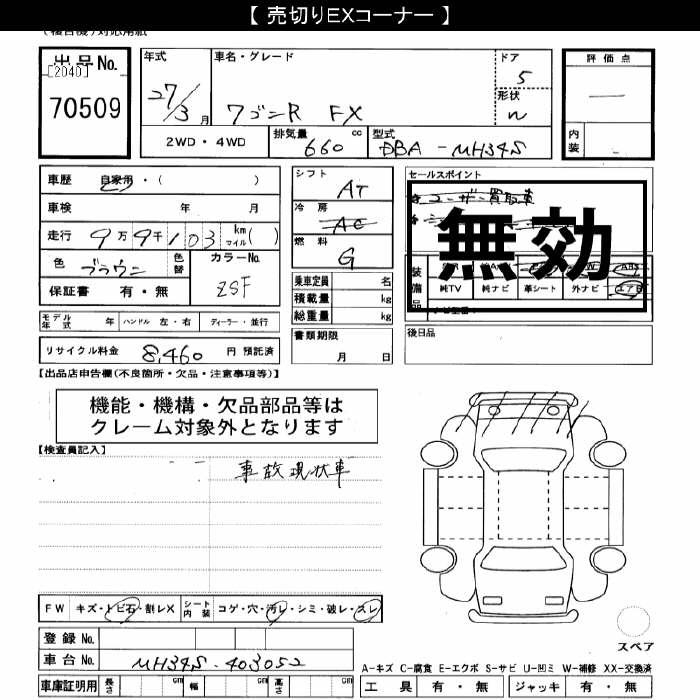 【 売切りEXコーナー 】
(複合機)対応用紙
出品No.
[2040]
70509
年式
27/3 月
車名・グレード
ワゴンR FX
ドア
5
形状
評価点
—
2WD・4WD
排気量
660 cc
型式
DBA-MH34S
内装
車歴 自家用・( )
車検 年 月
走行 9万9千103 km マイル( )
色 ブラウン
色替
カラーNo.
ZSF
保証書 有・無
シフト
AT
冷房
AC
燃料
G
乗車定員 名
積載量 kg
総重量 kg
セールスポイント
ユーザー買取車
無効
装備品
純TV 純ナビ 革シート 外ナビ エアB
モデル年式 年 ハンドル 左・右 ディーラー・並行
リサイクル料金 8,460 円 預託済
書類期限
月 日
後日品
【出品店申告欄(不良箇所・欠品・注意事項等)】
機能・機構・欠品部品等は
クレーム対象外となります
【検査員記入】
事故現状車
FW キズ・トビ石・割レX シート内装 コゲ・穴・汚レ・シミ・破レ・スレ
登録 No.
車台 No. MH34S-403052
車庫証明用 長さ cm 幅 cm 高さ cm
スペア
A-キズ C-腐食 E-エクボ S-サビ U-凹ミ W-補修 XX-交換済
工具 有・無 ジャッキ 有・無